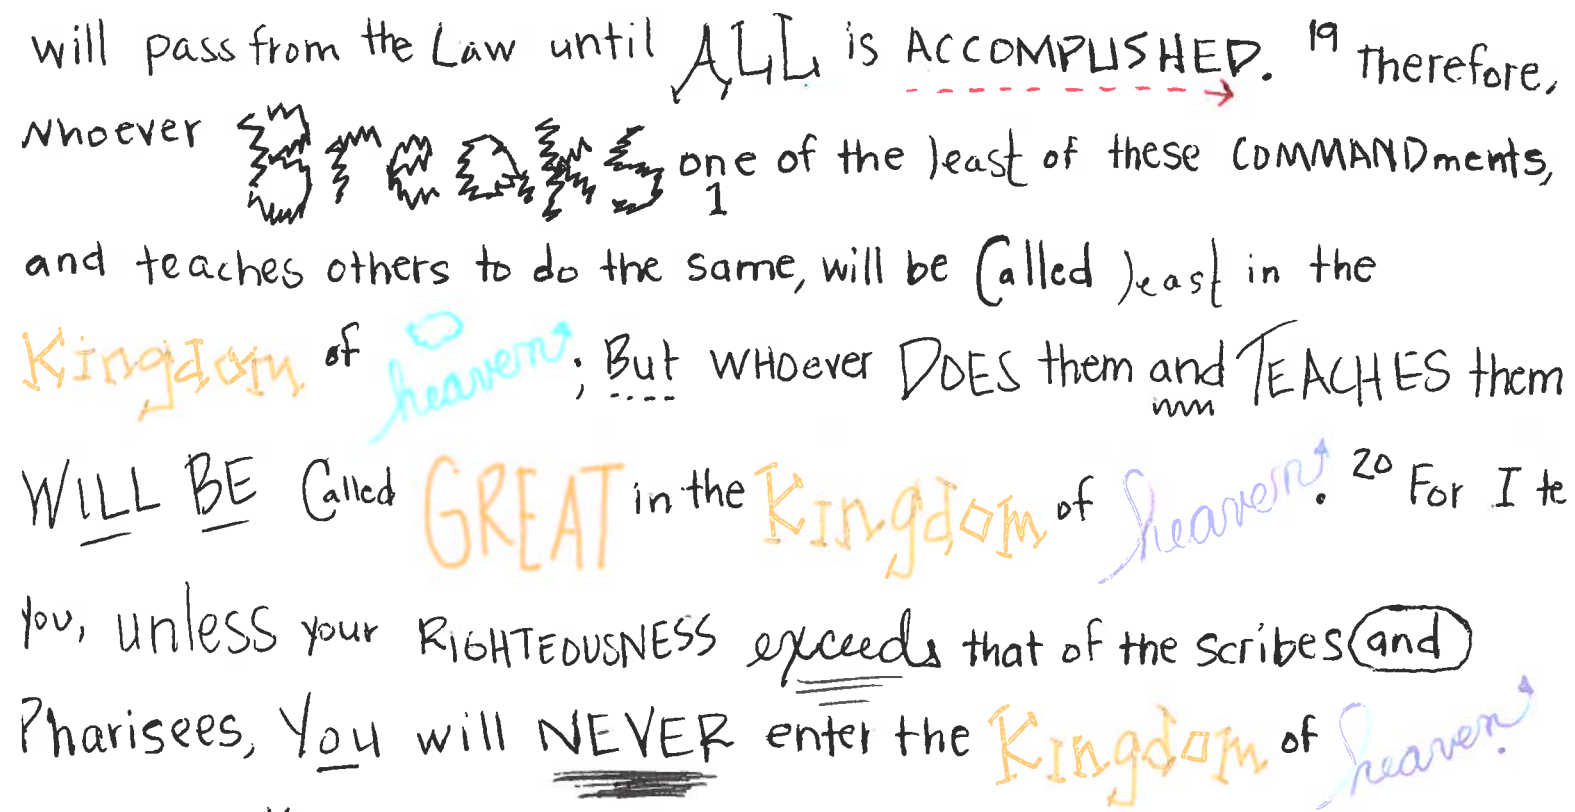 will pass from the Law until ALL is ACCOMPLISHED. 19 Therefore,
whoever Breaks one of the least of these COMMANDments,
1
and teaches others to do the same, will be Called least in the
Kingdom of heaven; But WHOever DOES them and TEACHES them
WILL BE Called GREAT in the Kingdom of heaven. 20 For I te
you, unless your RIGHTEOUSNESS exceeds that of the scribes and
Pharisees, You will NEVER enter the Kingdom of heaven.